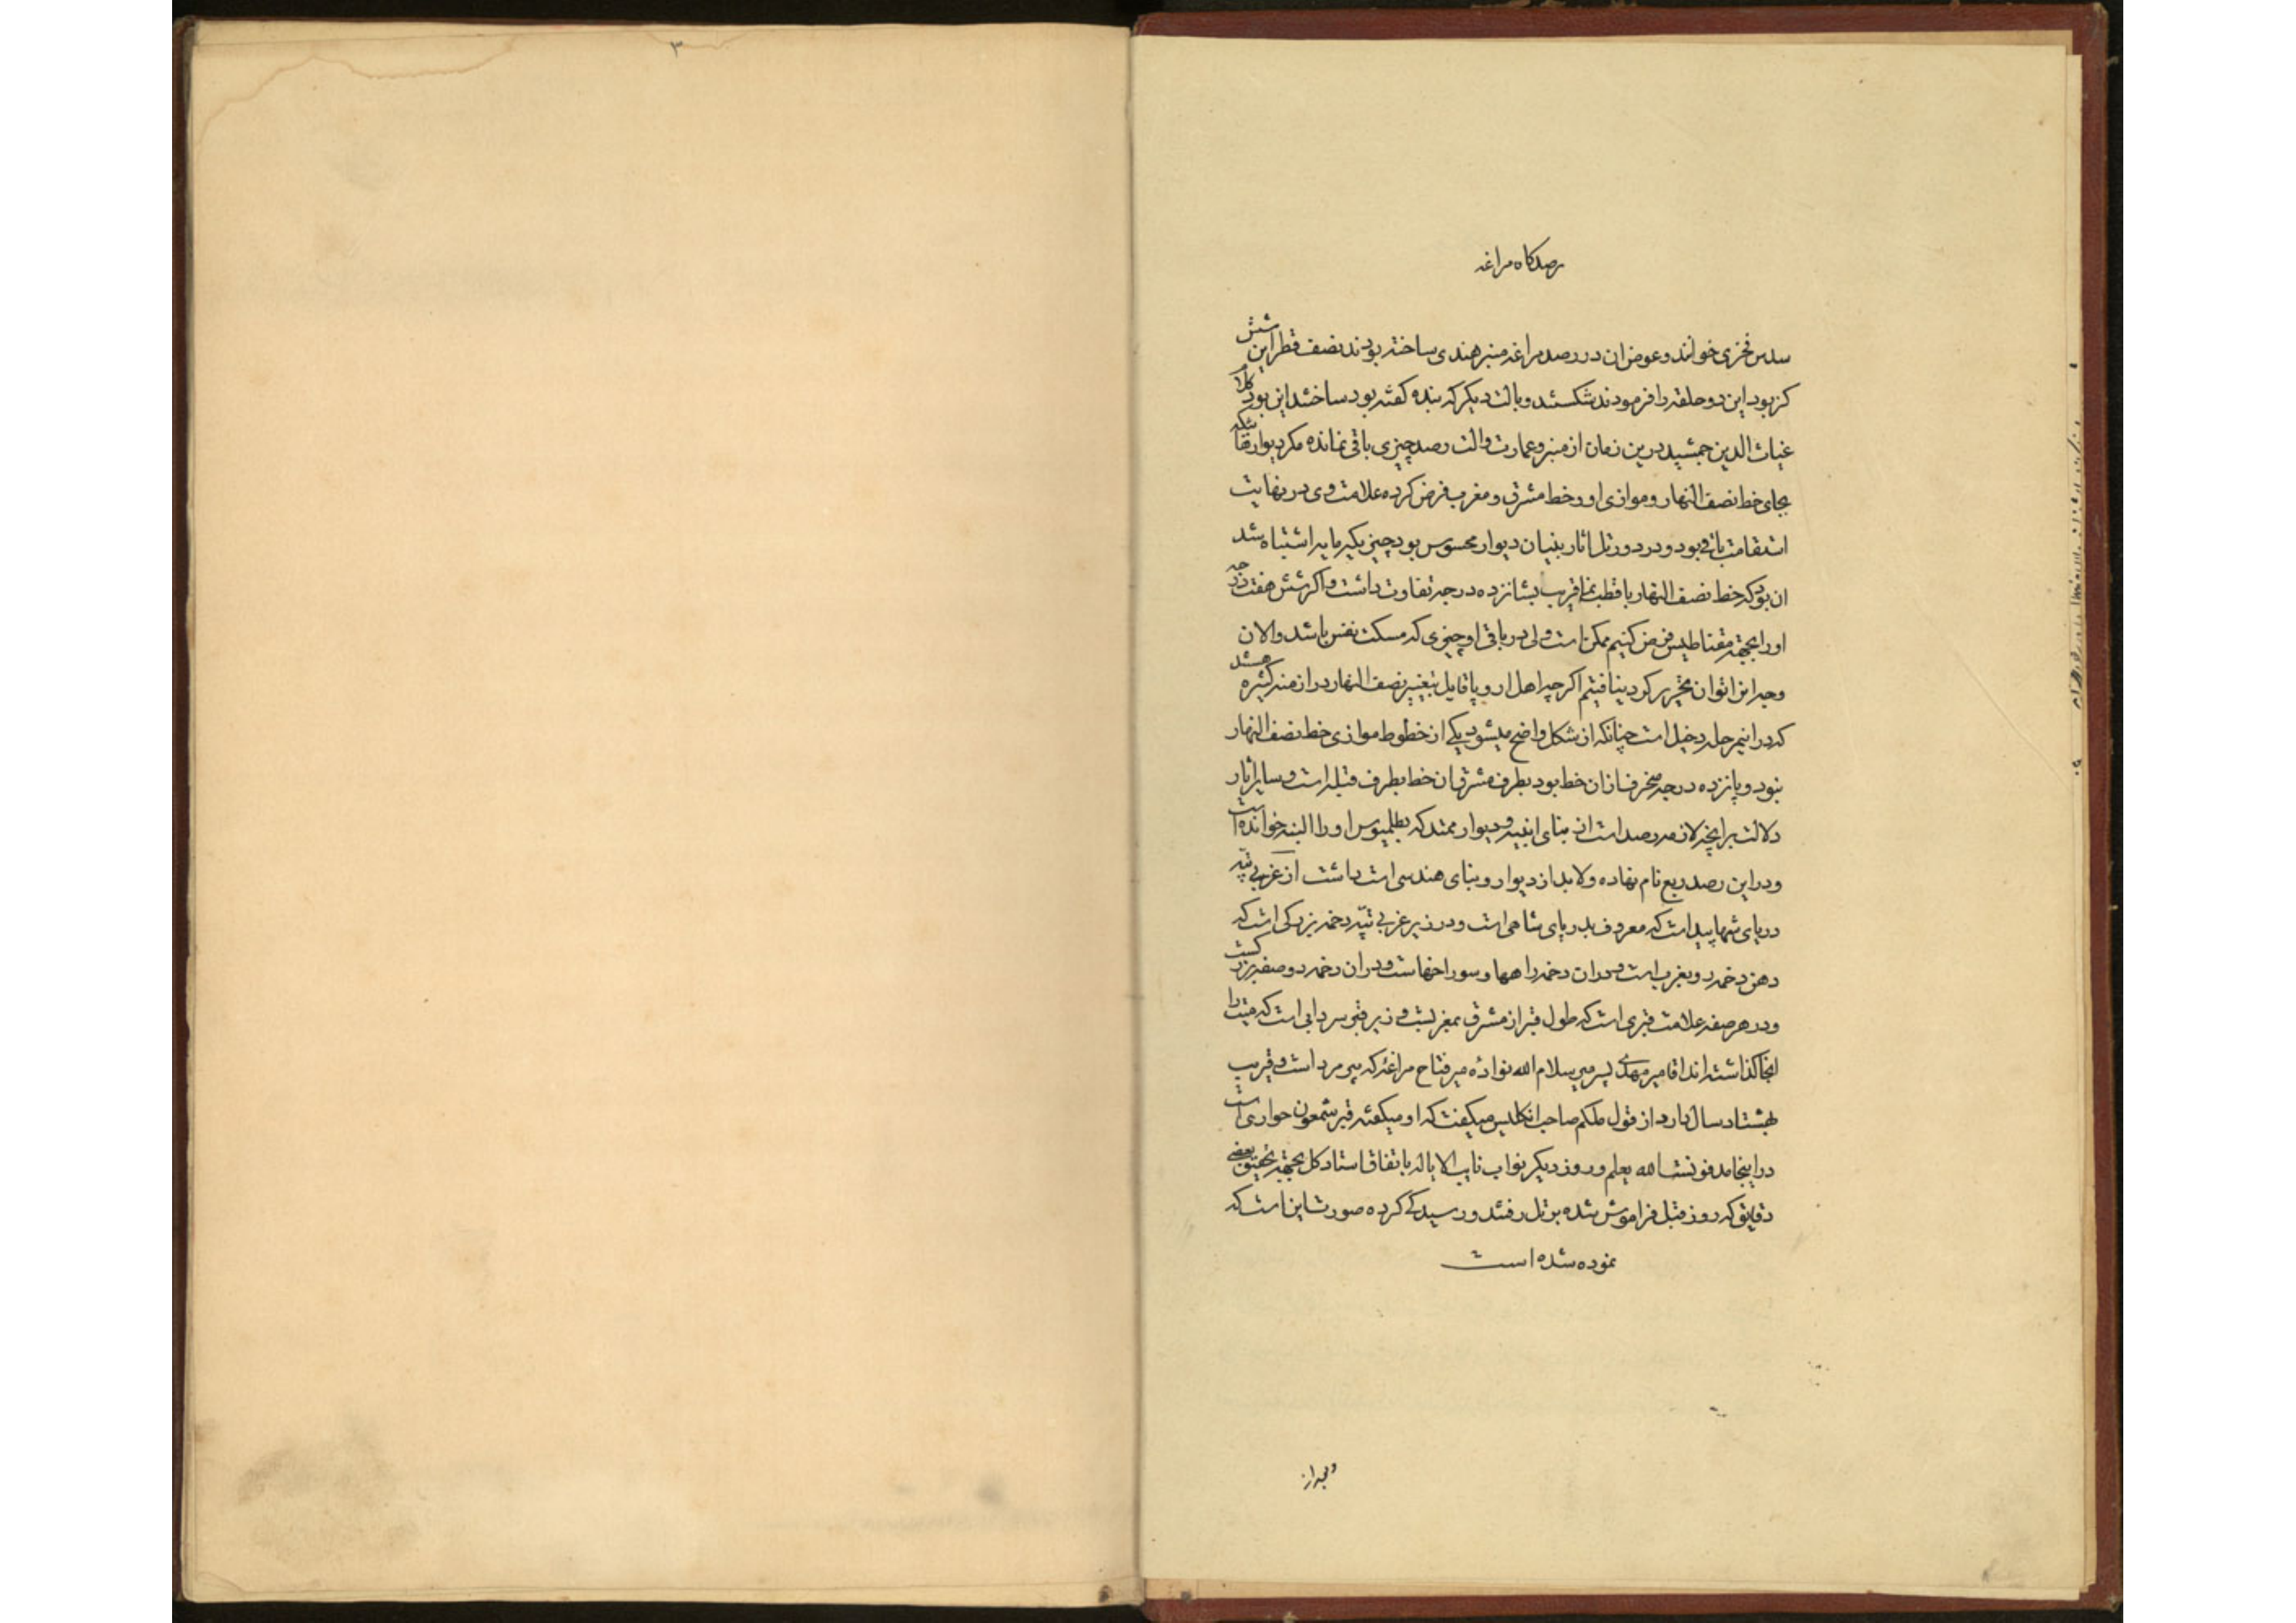 ۳
رصدکاه مراغه
سدس فخری خوانند و عوض ان در رصد مراغه منبر هندی ساخته بودند نصف قطر این شش
کز بود این دو حلقه را فرمودند شکستند و بالت دیکر که بنده کفته بود ساختند این بود کلام
غیاث الدین جمشید درین زمان از منبر و عمارت و الت رصد چیزی باقی نمانده مکر دیوار
بجای خط نصف النهار و موازی او و خط مشرق و مغرب فرض کرده علامت وی در نهایت
استقامت باقی بود و در دور تل اثار بنیان دیوار محسوس بود چیزیکه مایه اشتباه شد
ان بود که خط نصف النهار با قطب نما قریب بشانزده درجه تفاوت داشت و اکر شش هفت درجه
اورا بجهة مقناطیس فرض کنیم ممکن است ولی در باقی او چیزی که مسکت نفس باشد و الان
وجه انرا توان تحریر کرد نیافتیم اکرچه اهل اروپا قایل بتغییر نصف النهار در ازمنه کثیره هستند
که در اینمرحله دخیل است چنانکه از شکل واضح میشود یکی از خطوط موازی خط نصف النهار
نبود و پانزده درجه منحرف از ان خط بود بطرف مشرق ان خط بطرف قبله است و سایر اثار
دلالت برانچه لازمه رصد است از بنای ابنیه و دیوار ممتد که بطلمیوس اورا البنه خوانده است
و در این رصد ربع نام نهاده و لابد از دیوار و بنای هندسی است داشت از غربی تپه
دریای شها پیداست که معروف بدریای شاهی است و در زیر غربی تپه دخمه بزرکی است که
دهن دخمه رو بغرب است و در ان دخمه راهها و سوراخهاست و در ان دخمه دو صفه بزرکست
و در هر صفه علامت قبری است که طول قبر از مشرق بمغربست و زیر قبر سردابی است که میت را
انجا کذاشته اند اقا میر مهدی پسر میر سلام الله نواده میر فتاح مراغه که پیر مرد است و قریب
بهشتاد سال دارد از قول ملکم صاحب انکلیس میکفت که او میکفته قبر شمعون حواری است
در اینجا مدفونست الله یعلم و روز دیکر نواب نایب الایاله باتفاق استاد کل بجهة تحقیق بعضی
دقایق که روز قبل فراموش شده بر تل رفتند و رسیدکی کرده صورت این است که
نموده شده است